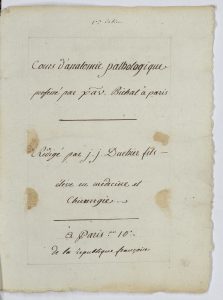 Cours d'anatomie pathologique
professé par xav. Bichat à paris
Rédigé par j. j. fils
éleve en médecine et
Chirurgie
à Paris an 10e.
de la republique françoise